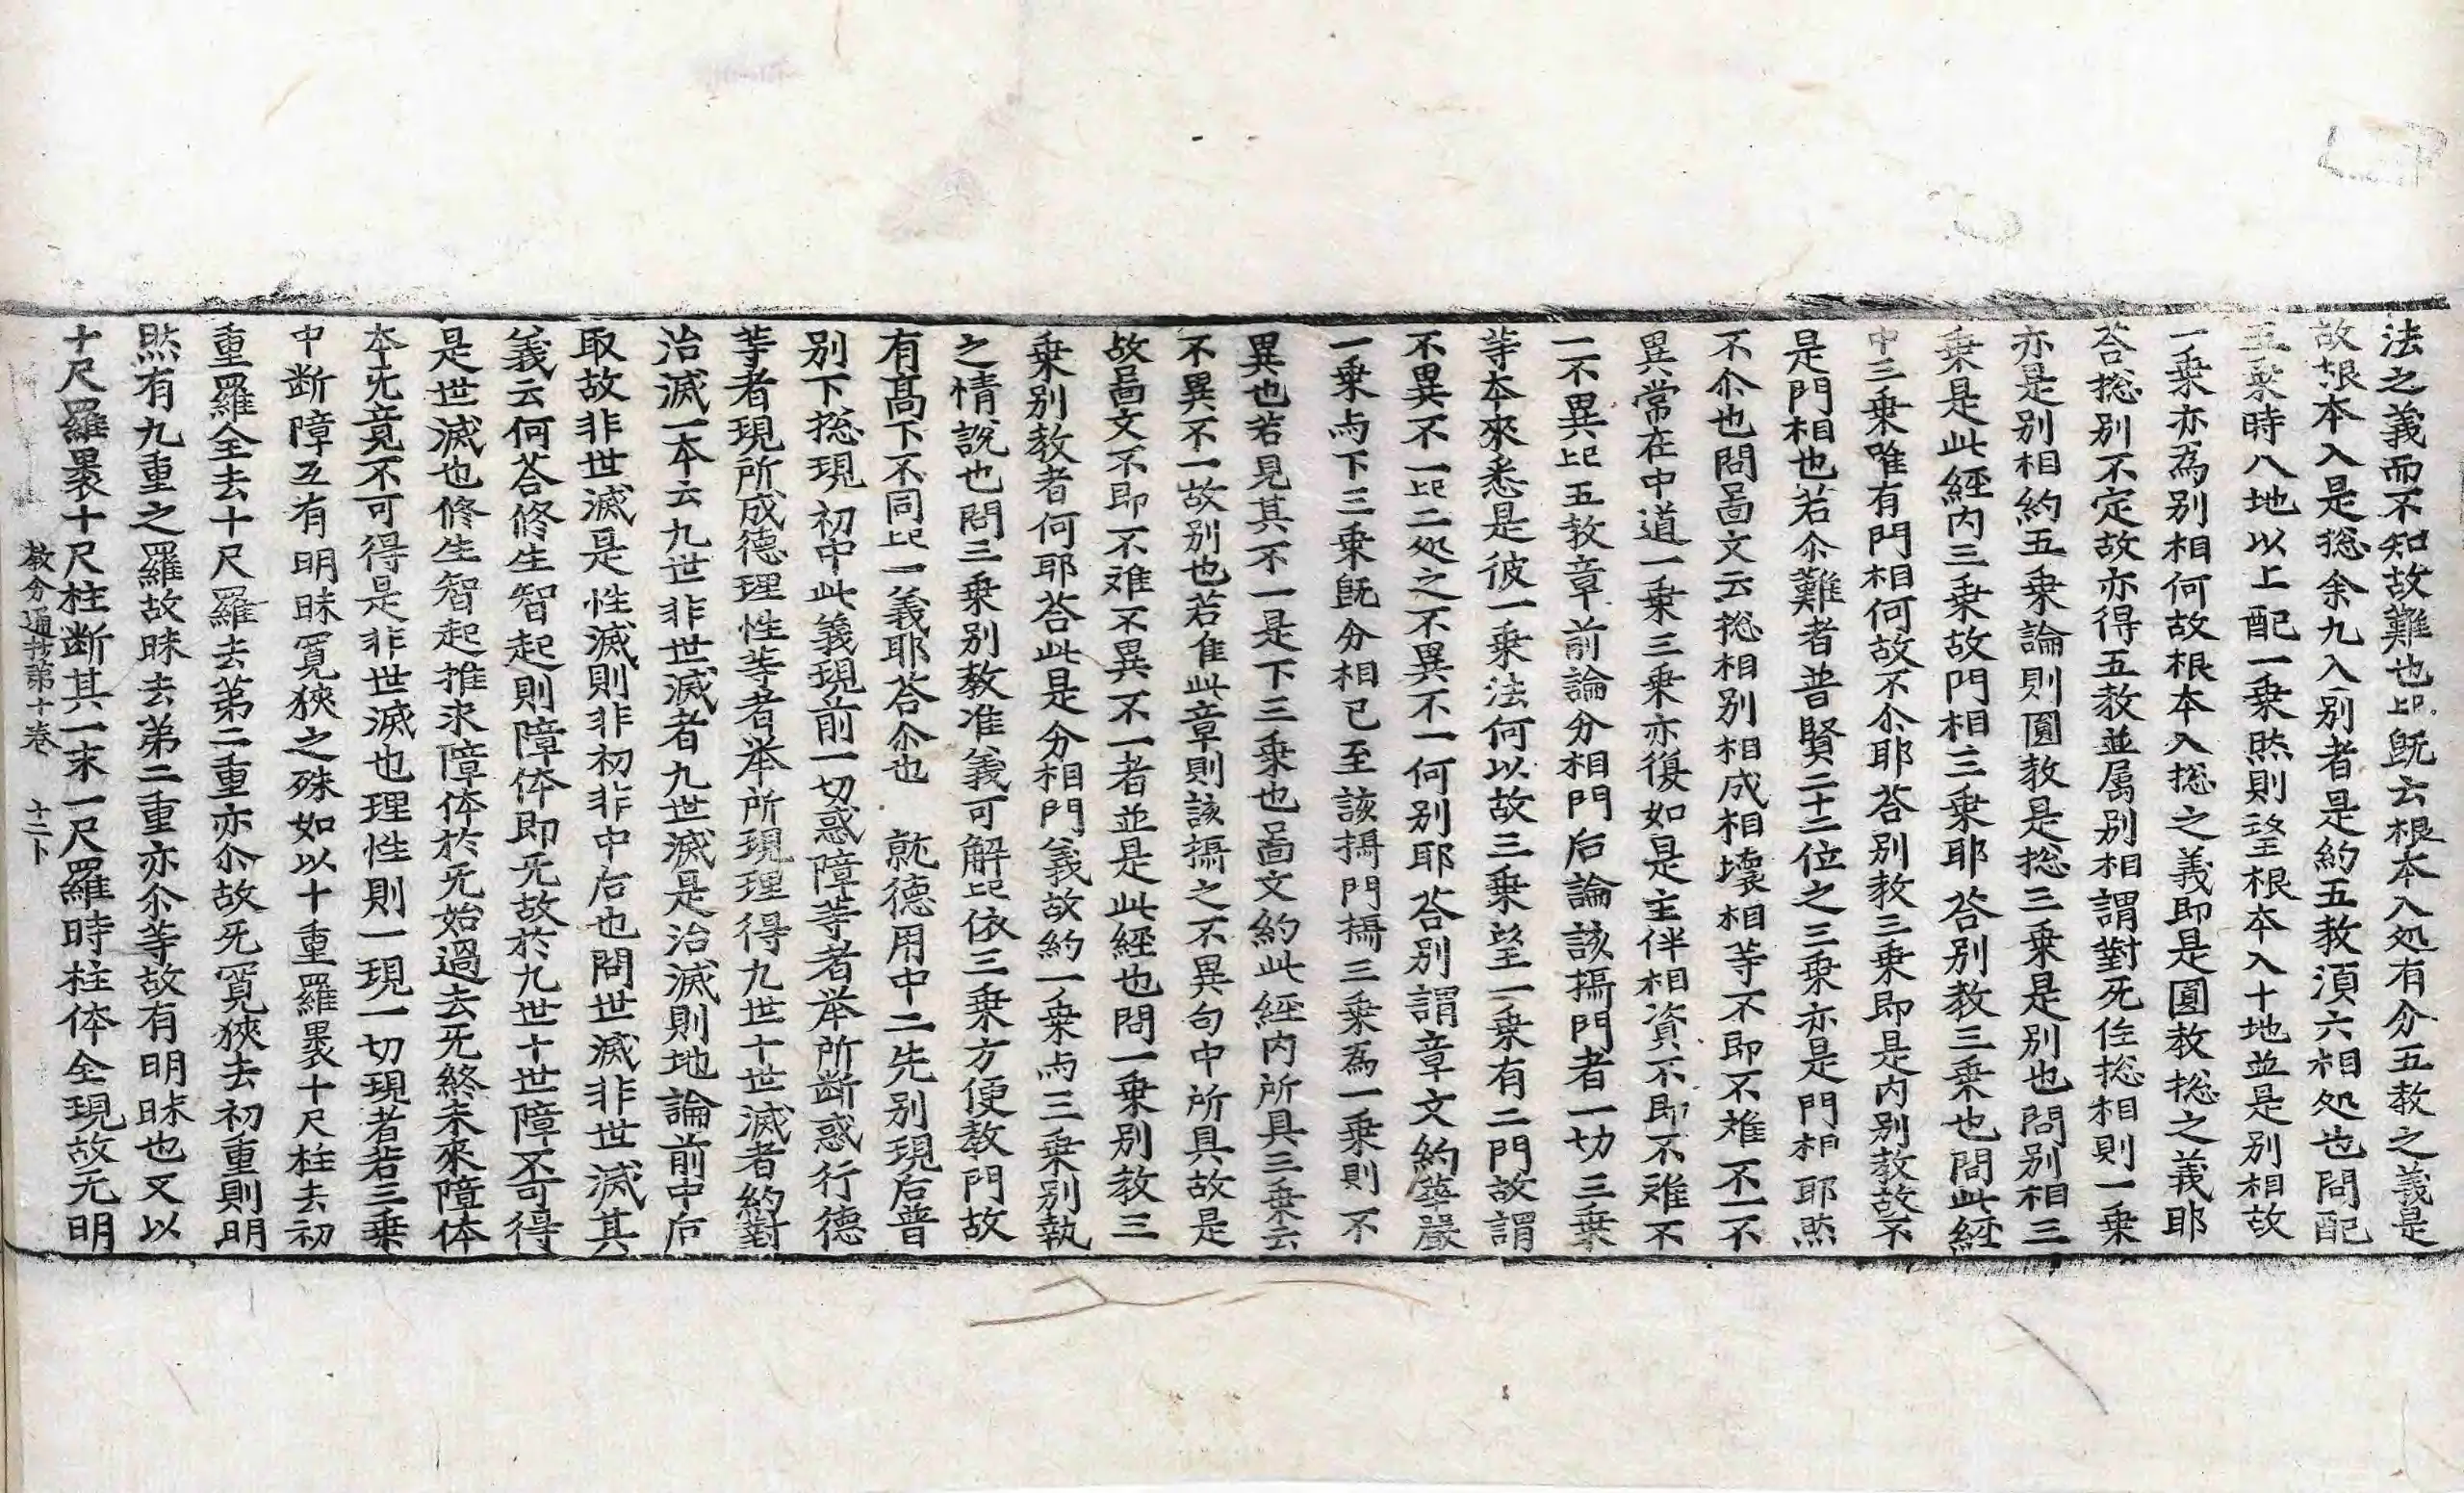 法之義而不知故難也㘴旣去根本入処有分五教之義是
故根本入是捴余九入別者是約五教湏六相処也問配
五乗時八地以上配一乗㷊則望根本入十地並是別相故
一乗亦為別相何故根本入捴之義即是圓教捴之義耶
荅捴別不定故亦得五教並属別相謂對死住捴相則一乗
亦是別相約五乗論則圓教是捴三乗是別也問別相三
乗是此經内三乗故門相三乗耶荅別教三乗也問此經
中三乗唯有門相何故不尒耶荅別教三乗即是内別教故不
是門相也若尒難者普賢二十二位之三乗亦是門相耶㷊
不尒也問啚文云捴相別相成相壞相等不即不難不一不
異常在中道一乗三乗亦復如是主伴相資不即不難不
一不異㘴五教章前論分相門后論該攝門者一切三乗
等本來悉是彼一乗法何以故三乗望一乗有二門故謂
不異不一㘴二処之不異不一何別耶荅別謂章文約華嚴
一乗与下三乗旣分相已至該攝門攝三乗為一乗則不
異也若見其不一是下三乗也啚文約此經内所具三乗云
不異不一故別也若隹此章則該攝之不異句中所具故是
故啚文不即不難不異不一者並是此經也問一乗別教三
乗別教者何耶荅此是分相門義故約一乗与三乗別執
之情說也問三乗別教准義可解㘴依三乗方便教門故
有髙下不同㘴一義耶荅尒也　就德用中二先別現后普
別下捴現初中此義現前一切惑障等者举所断惑行德
等者現所成德理性等者举所現理得九世十世滅者約對
治滅一本云九世非世滅者九世滅是治滅則地論前中后
取故非世滅是性滅則非初非中后也問世滅非世滅其
義云何荅修生智起則障体即旡故於九世十世障不可得
是世滅也修生智起推求障体於旡始過去旡終未來障体
本旡竟不可得是非世滅也理性則一現一切現者若三乗
中断障互有明昧寛狹之殊如以十重羅褁十尺柱去初
重羅全去十尺羅去第二重亦尒故旡寛狹去初重則明
㷊有九重之羅故昧去第二重亦尒等故有明昧也又以
十尺羅褁十尺柱断其一末一尺羅時柱体全現故旡明
教分通抄第十卷　十二卜